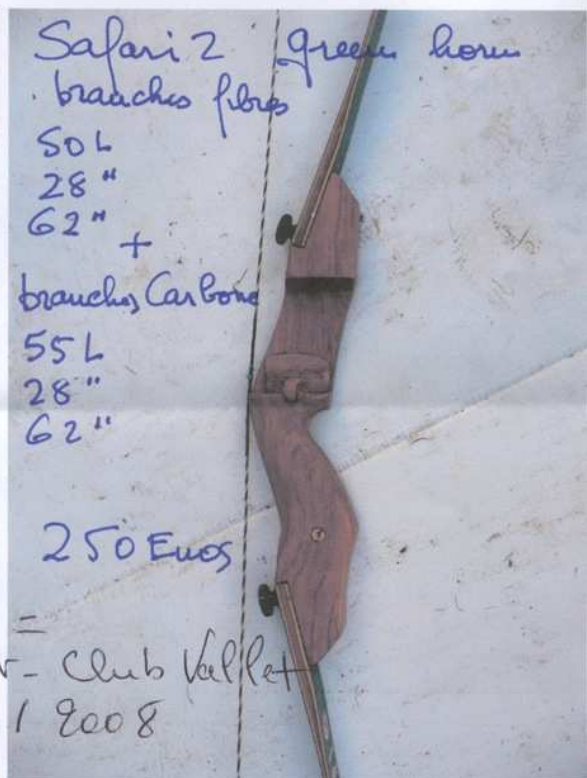 Safari 2 green horn
branches fibres
50 L
28 "
62 "
+
branches Carbone
55 L
28 "
62 "
250 Euros
=
- Club Vallet
/ 2008